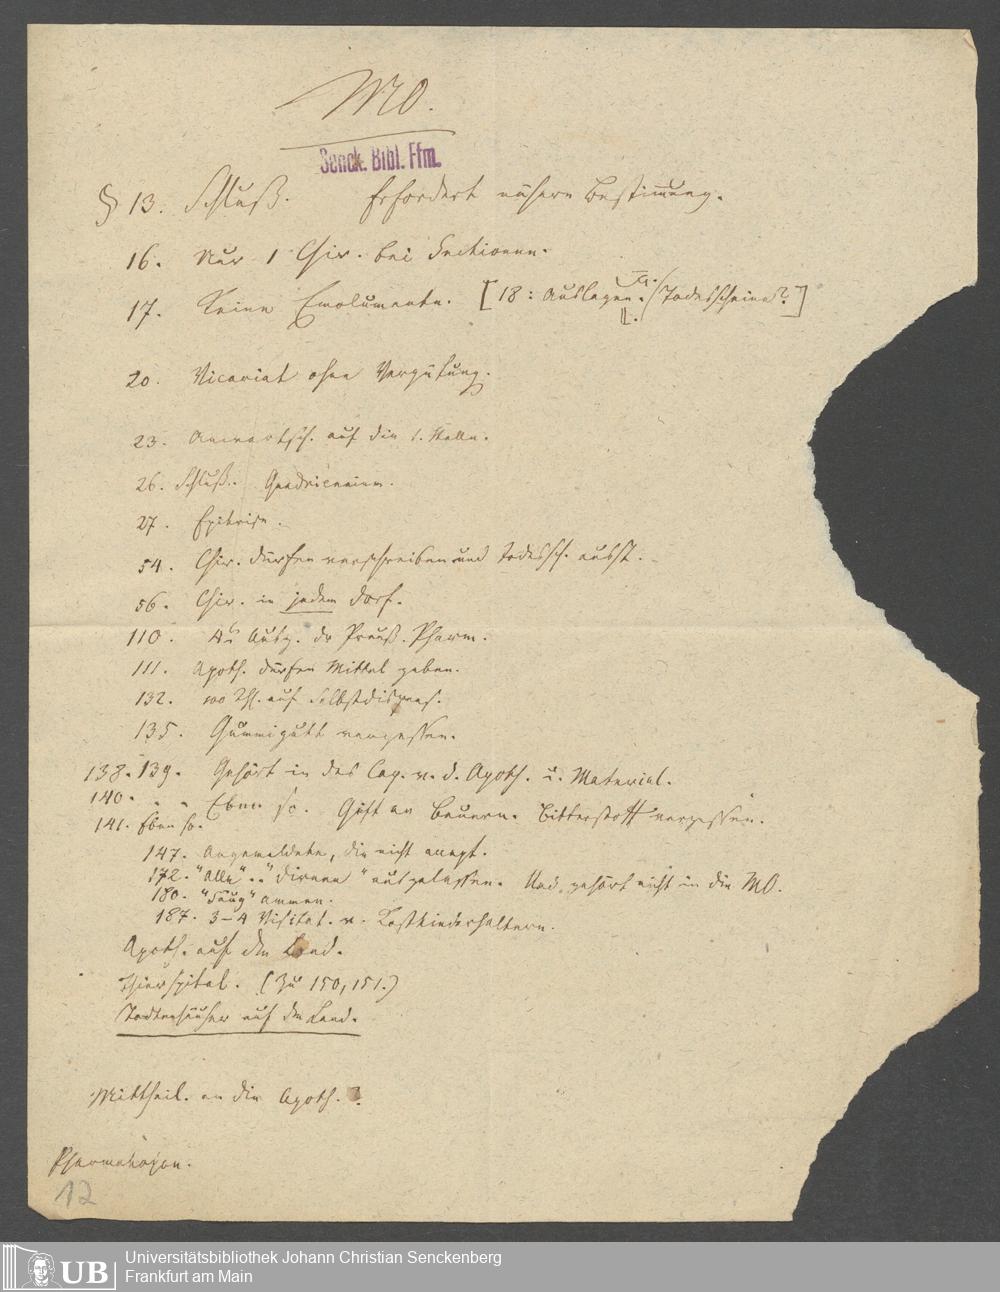 MO.
Senck. Bibl. Ffm.
§ 13. Schluß. Erfordert nähere Bestimmung.
16. Nur 1 Chir. bei Sectionen.
17. Keine Emolumente. [18: Auslagen. (Todesscheine?]
20. Vicariat ohne Vergütung.
23. Anwartsch. auf die 1. Stelle.
26. Schluß. Quadriennium.
27. Epikrise.
54. Chir. dürfen verschreiben und Todessch. ausst.
56. Chir. in jedem Dorf.
110. 4te Ausg. dr Preuß. Pharm.
111. Apoth. dürfen Mittel geben.
132. 100 Thl. auf Selbstdispens.
135. Gummigutt vergessen.
138. 139. Gehört in das Cap. v. d. Apoth. u. Material.
140. . . Eben so. Gift an Bauern. Bitterstoff vergessen.
141. Eben so.
147. Angemeldete, die nicht accept.
172. "Alle" .. "Dirnen" ausgelassen. Und gehört nicht in die MO.
180. "Säug"ammen.
187. 3-4 Visitat. v. Kostkinderhaltern.
Apoth. auf dem Land.
Thierspital. (Zu 150, 151.)
Todtenhäuser auf dem Land.
Mittheil. an die Apoth.?
Pharmakopoe.
12
UB Universitätsbibliothek Johann Christian Senckenberg
Frankfurt am Main